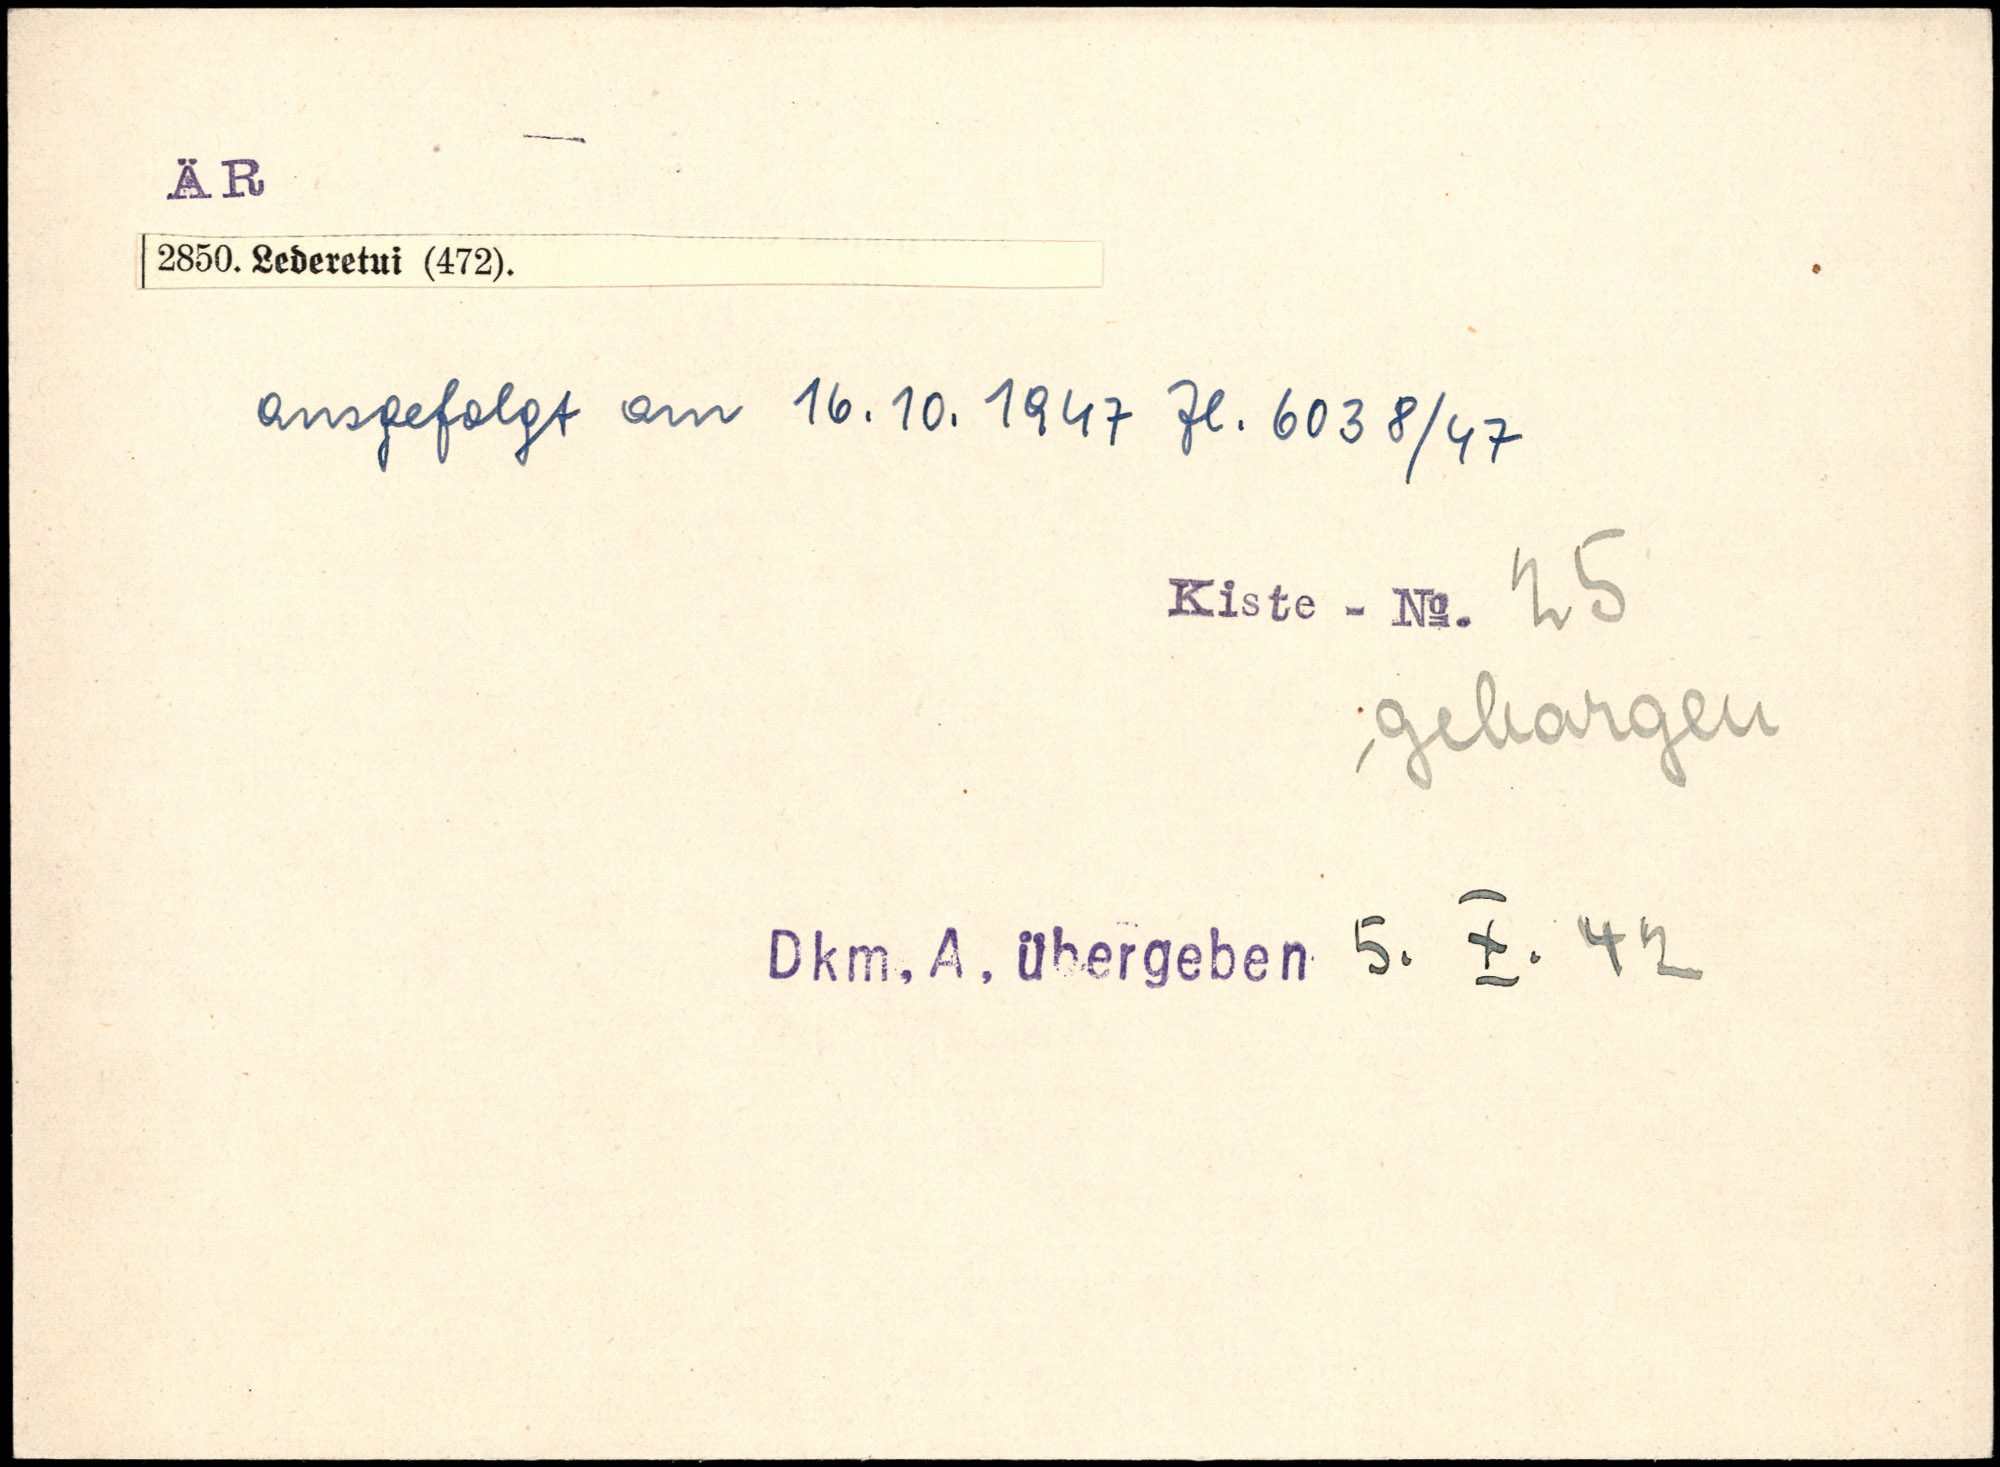 ÄR
2850. Lederetui (472).
ausgefolgt am 16.10.1947 Zl. 6038/47
Kiste - №. 25
geborgen
Dkm. A. übergeben 5. X. 42